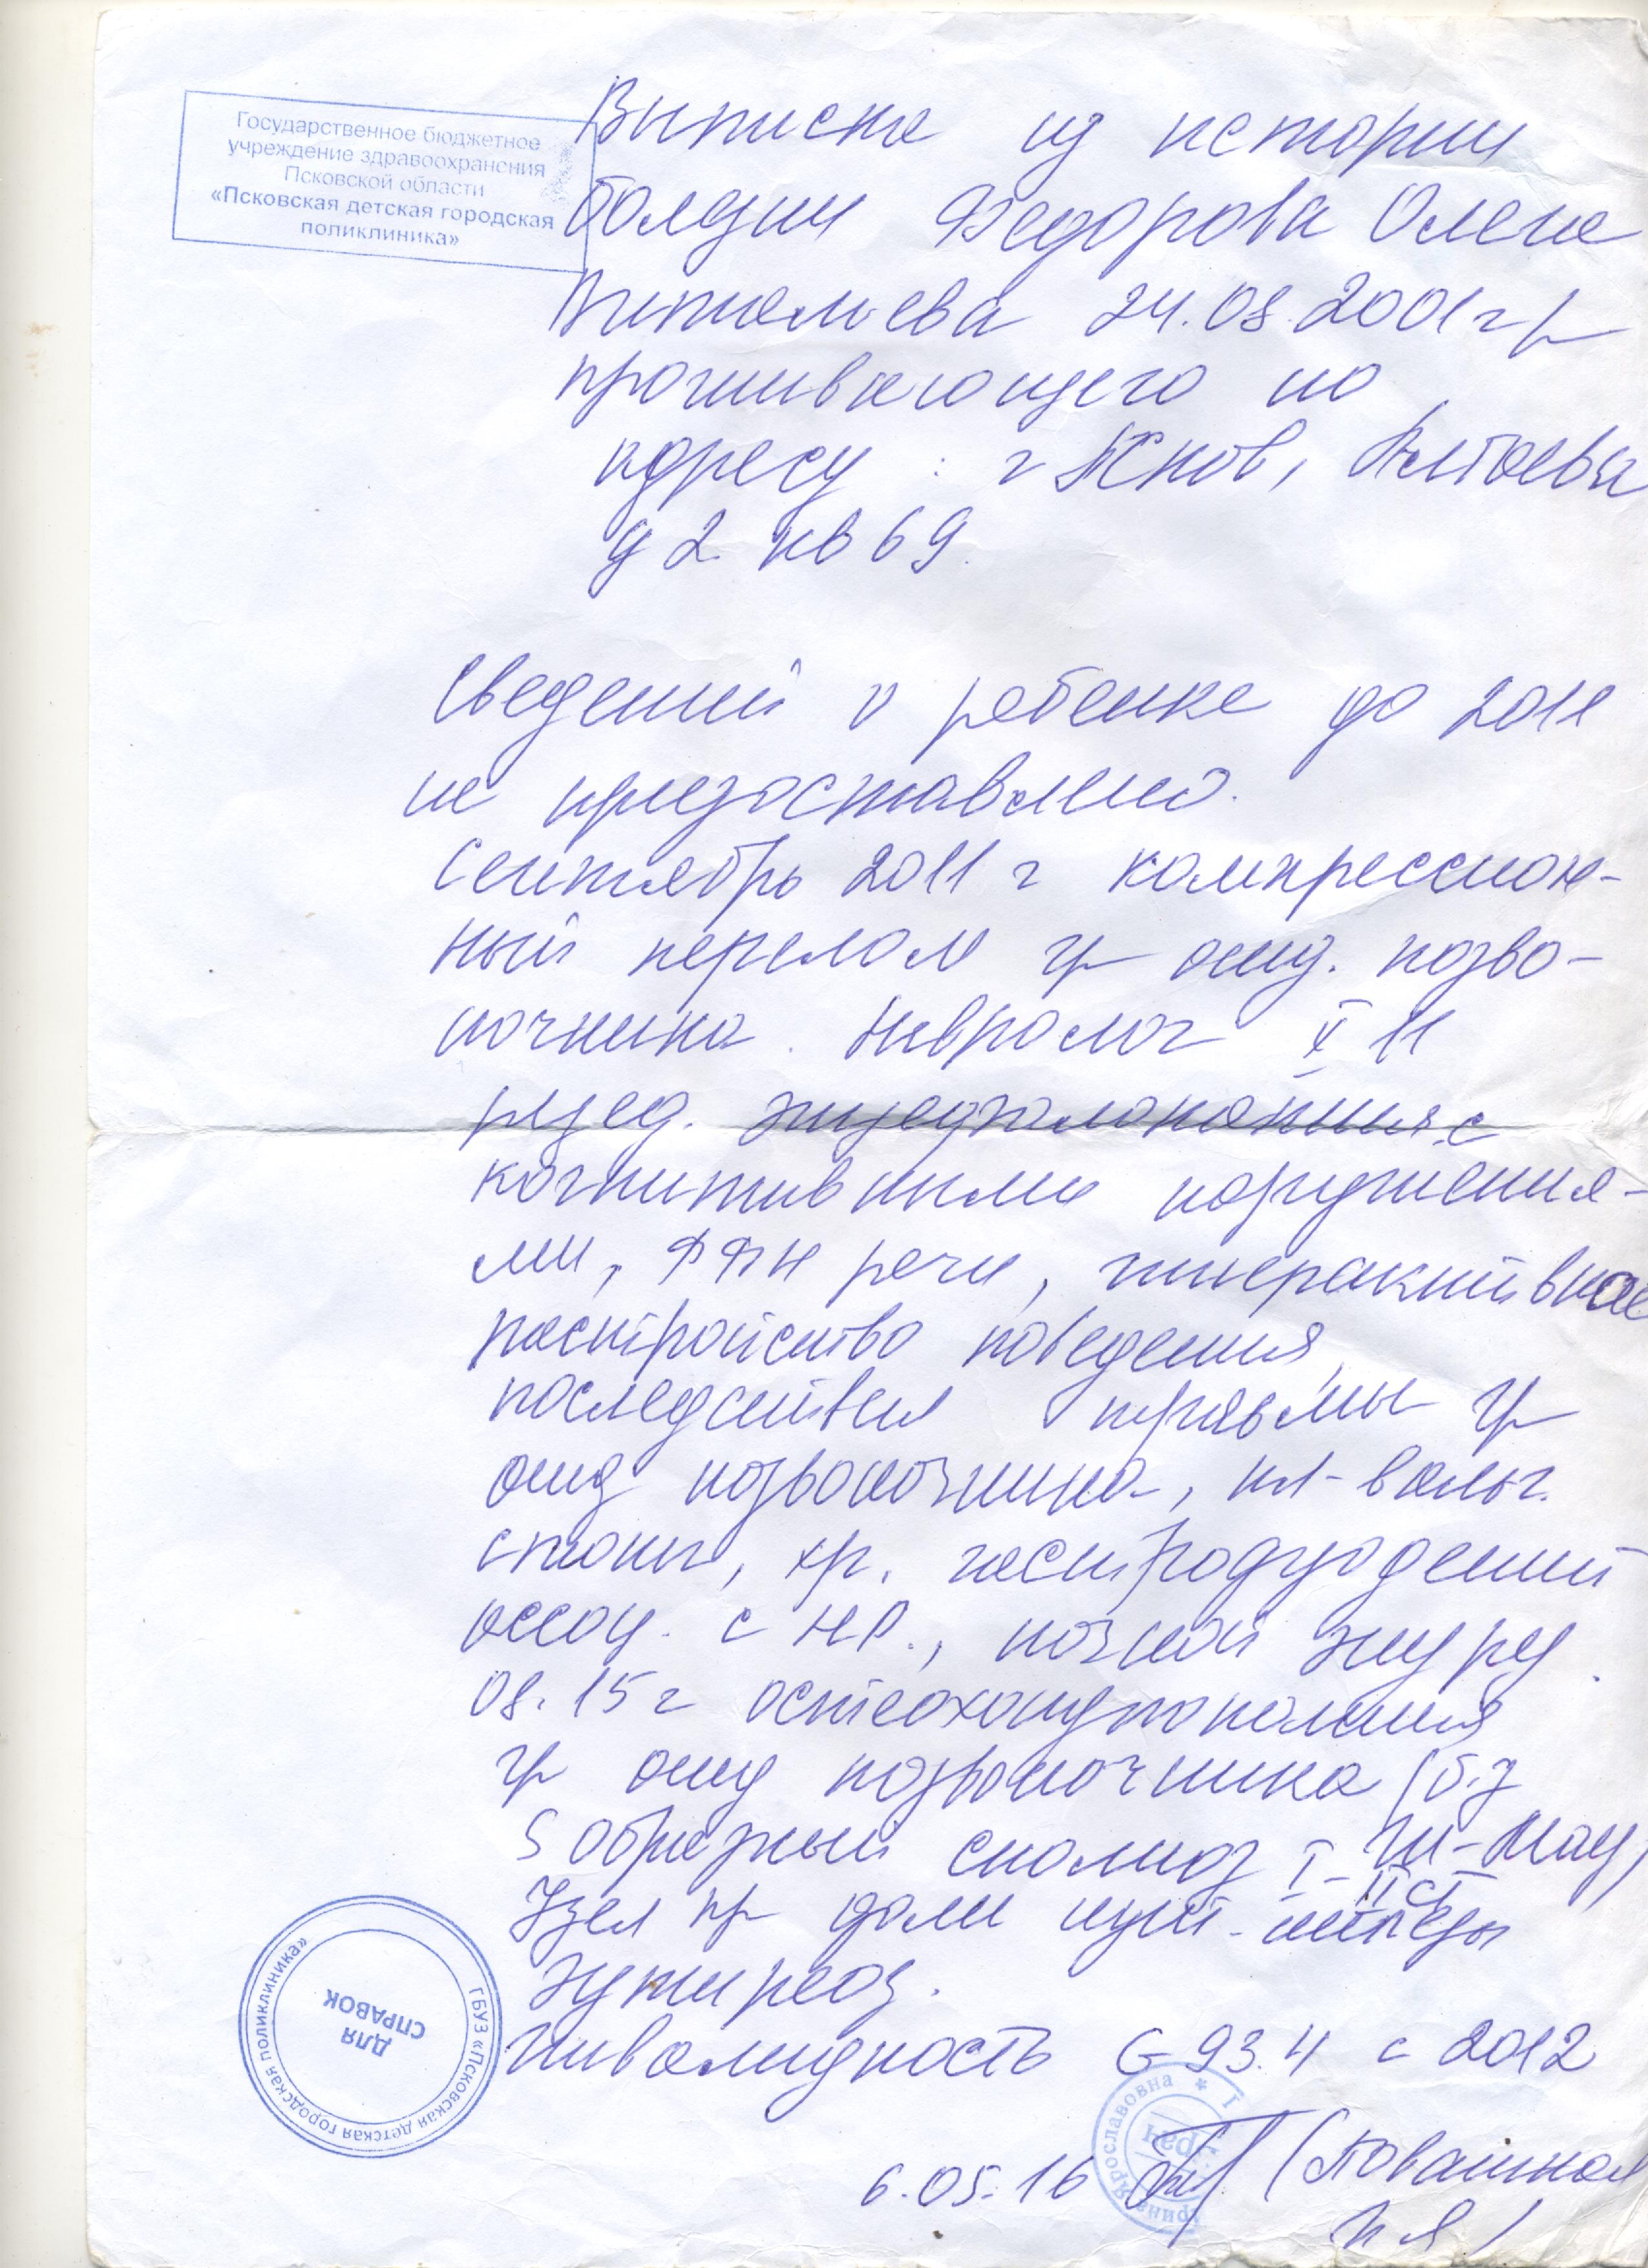 Государственное бюджетное
учреждение здравоохранения
Псковской области
«Псковская детская городская
поликлиника»
Выписка из истории
болезни Федорова Олега
Витальева 24.08.2001 гр
проживающего по
адресу: г Псков,
д 2 кв 69.
Сведений о ребенке до 2011
не предоставлено.
Сентябрь 2011 г компрессион-
ный перелом гр отд. позво-
ночника. Невролог X 11
резед. энцефалопатия с
когнитивными нарушения-
ми, ФФН речи, гиперактивное
расстройство поведения,
последствия травмы гр
отд позвоночника, пл-вальг.
стопы, хр. гастродуоденит
ассоц. с HP., ночной энурез.
08.15 г остеохондропатия
гр отд позвоночника (б-з
S образный сколиоз I-II ст Ш-Мау)
Узел пр доли щит. железы
Эутиреоз.
Инвалидность G 93.4 с 2012
6.05.16
ГБУЗ «Псковская детская городская поликлиника»
ДЛЯ
СПРАВОК
Ярославовна
Врач